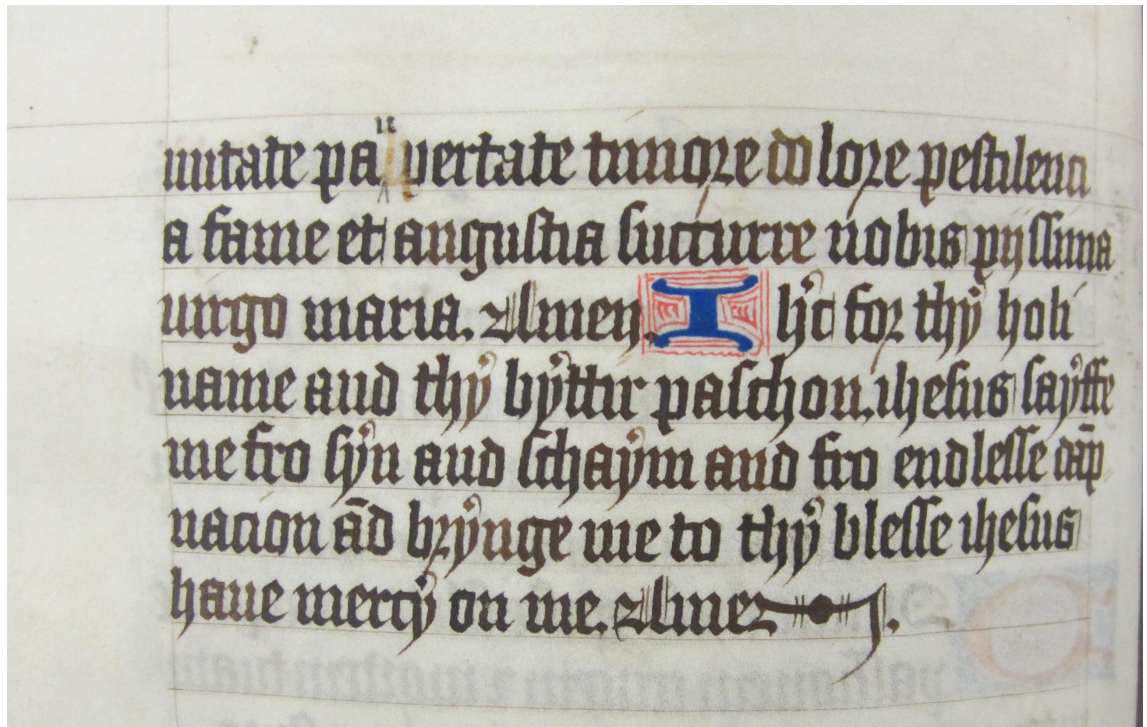 mitate pauꝑertate timore do lore pestilenci
a fame et angustia succurre nobis pijssima
uirgo maria. Amen. I h'c for thẏ holi
name and thẏ bẏttir paschon. ihesus saẏffe
me fro sẏn and schaẏm and fro endlesse dāp
nacion ād brẏnge me to thẏ blesse ihesus
haue mercẏ on me. Amen.